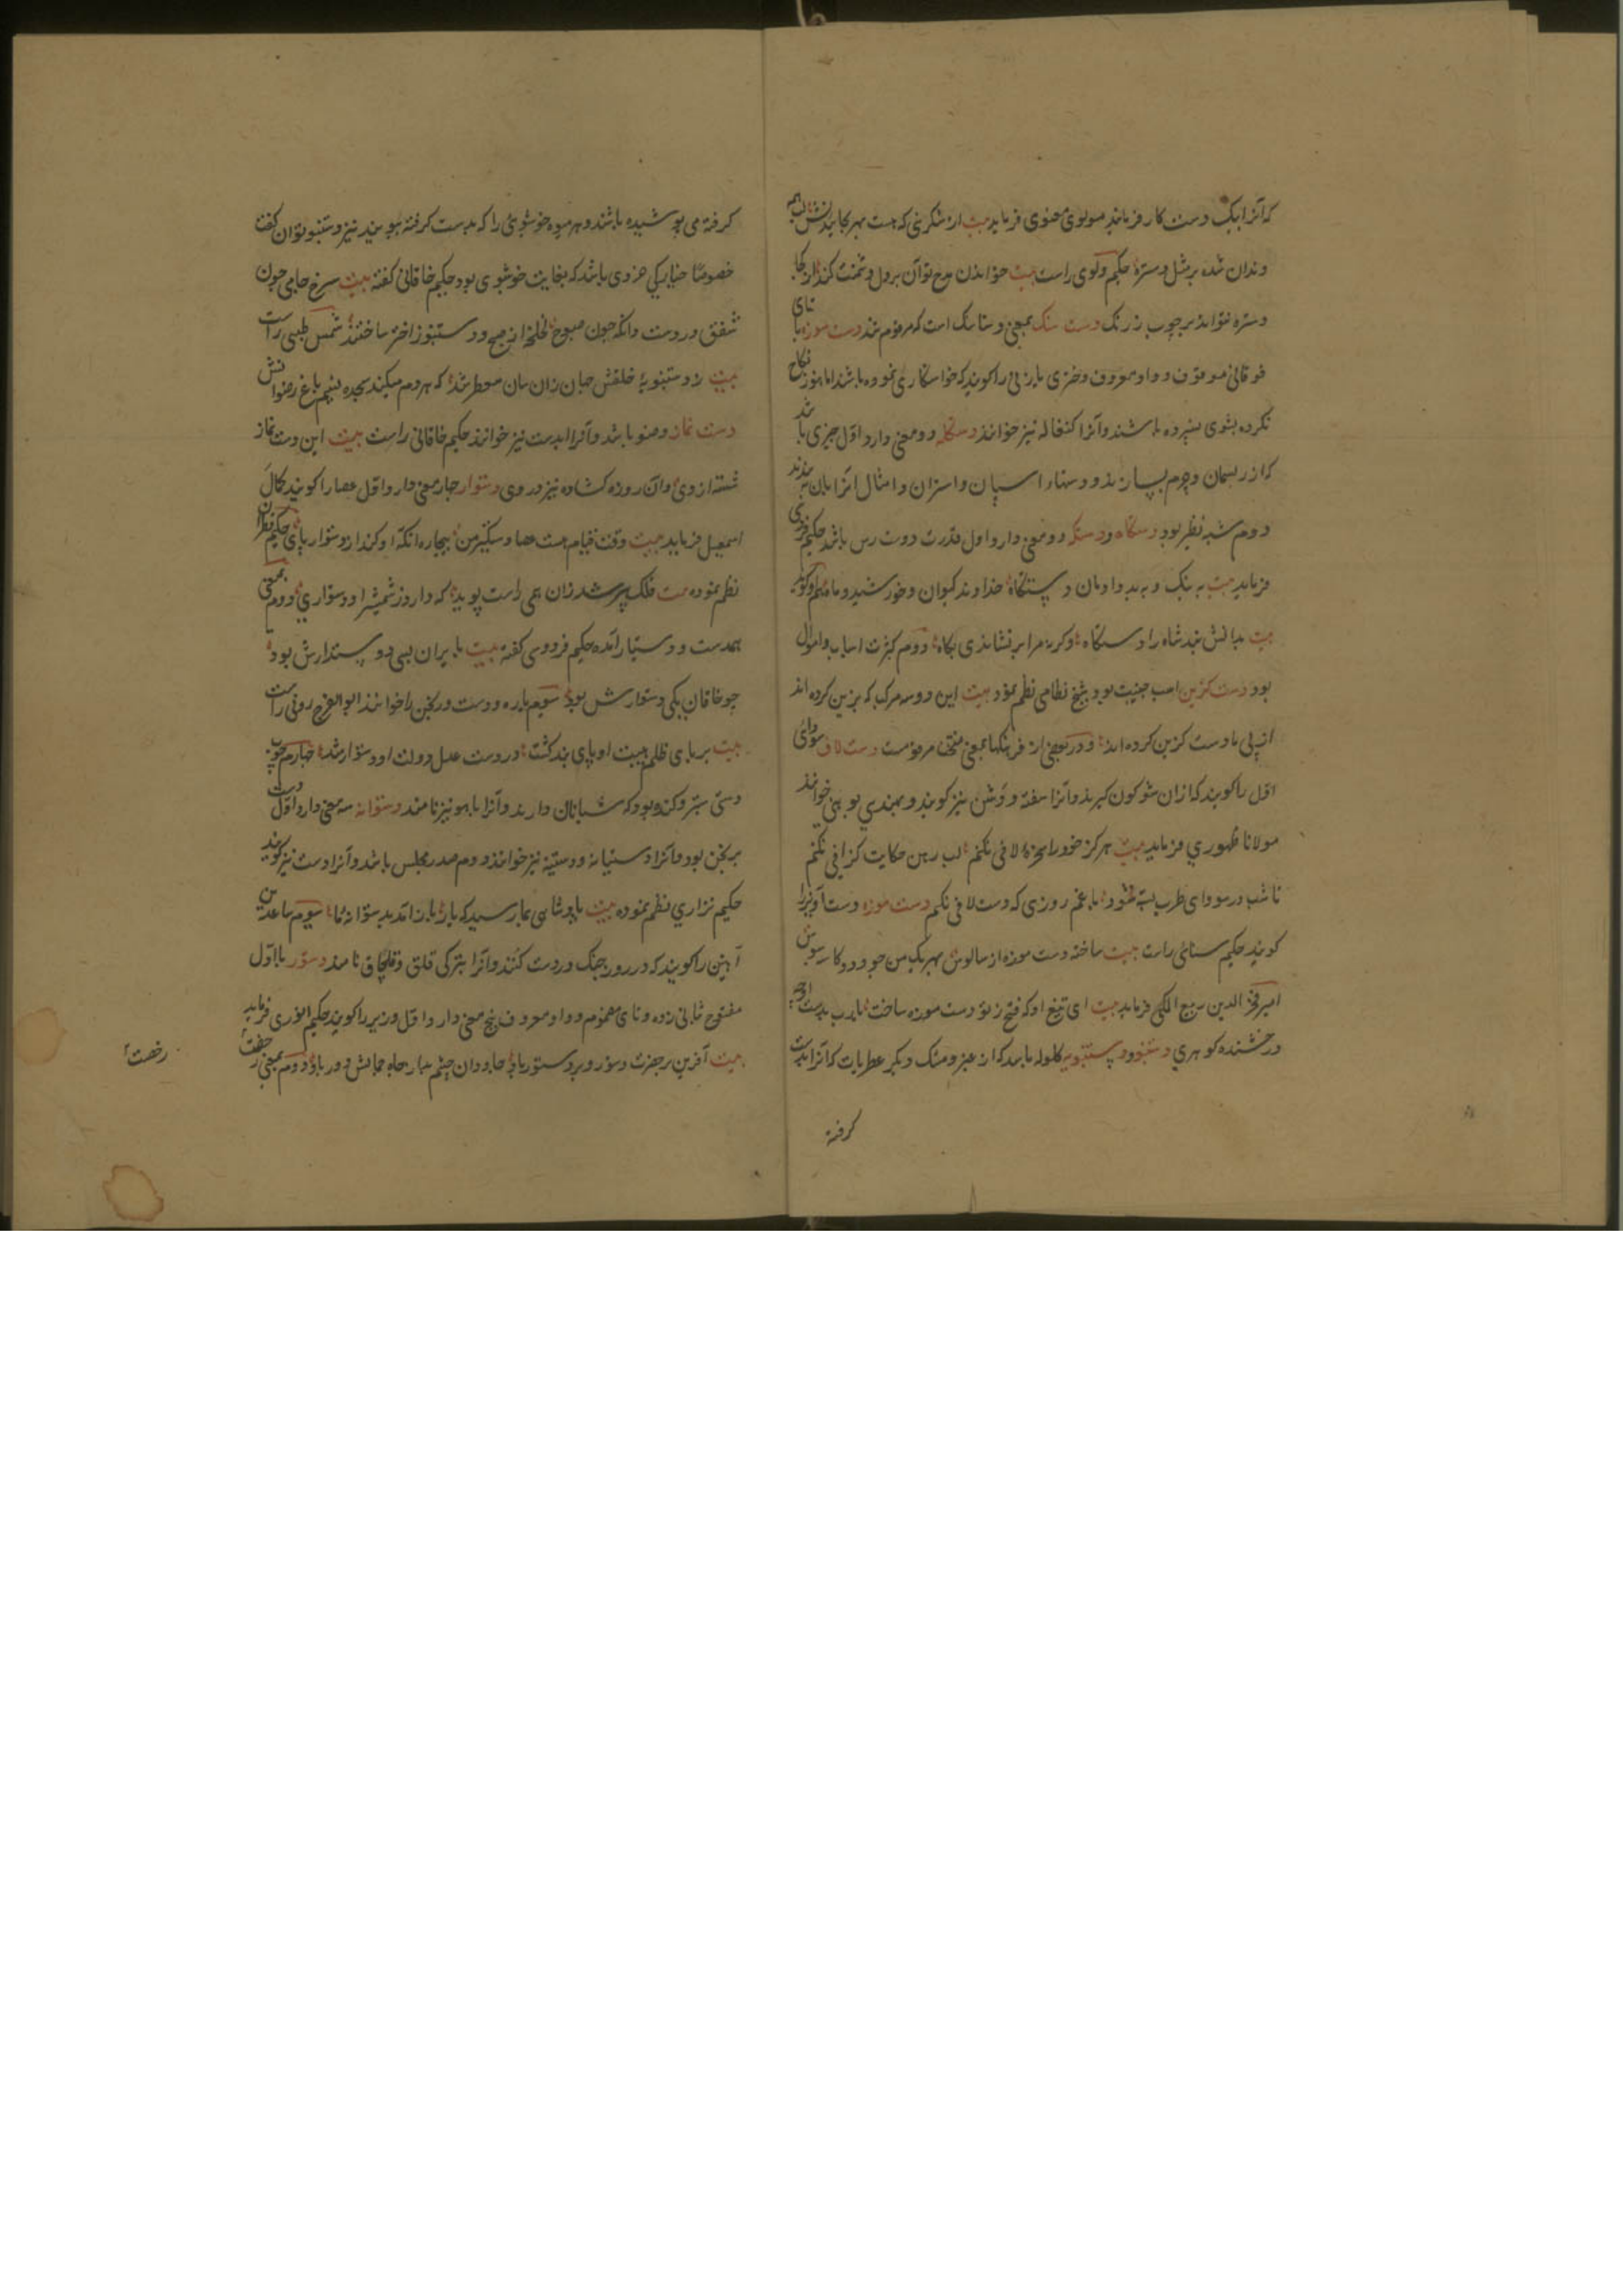 که آنرا بیک دست کار فرمایند مولوی معنوی فرماید بیت ار شکرئی که هست بهر بجا یدنش
دندان شده بر مثل دستره حکیم ولوی راست بیت خواندن مدح تو آن بر دل دشمنت کند از کجا
دستره نتواند بر چوب زرنک دست سنک بمعنی دستاسنک است که مرقوم شد دست موزه با تای
فوقانی موقوف و واو معروف دختری یا زنی را کویند که خواستکاری نموده باشند اما هنوز نکاح
نکرده بشوی نسپرده باشند و آنرا کنغاله نیز خوانند دستکله دو معنی دارد اول چیزی باشد
که از ریسمان و چرم بسازند و دستهای اسپان و استران و امثال آنرا بان به بندند
دوم شبه نظیر بود دستکاه و دستکه دو معنی دارد اول قدرت و دست رس باشد حکیم فردوسی
فرماید بیت به نیک و به بد دادمان دستکاه خداوند کیوان و خورشید و ماه هم او کوید
بیت بدانش نبد شاه را دستکاه وکرنه مرا بر نشاندی بکاه دوم کثرت اسباب و اموال
بود دست کزین اسب جنیبت بود شیخ نظامی نظم نمود بیت این دوسه مرکب که بزین کرده اند
از پی ما دست کزین کرده اند و در بعضی از فرهنکها بمعنی منتخب مرقومست دست لاف سودای
اول را کویند که ازان شوکون کیرند و آنرا سفته و دشن نیز کویند و بهندی بوهنی خوانند
مولانا ظهوری فرماید بیت هرکز خود را بهرزه لافی نکنم لب رهن حکایت کزافی نکنم
تا شب در سودای طرب بسته شود با غم روزی که دست لافی نکنم دست موزه دست آویز را
کویند حکیم سنائی راست بیت ساخته دست موزه از سالوس بهر یک من جو و دو کاسه سبوس
امیر فخر الدین ربیع الکی فرماید بیت ای تیغ اوکه فتح ز تو دست موزه ساخت یارب بدست
درخشنده کوهری دستنبو و دستنبویه کلوله باشد که از عنبر و مشک و دیکر عطریات که آنرا بدست
کرفته
کرفته می بوشیده باشند و هر میوه خوشبوئی را که بدست کرفته بویند نیز دستنبو توان کفت
خصوصاً خیارکی خردی باشد که بغایت خوشبوی بود حکیم خاقانی کفته بیت سرخ جامی چون
شفق در دست وانکه چون صبوح لخلخه از صبح و دستنبو ز اختر ساختند شمس طبسی راست
بیت ز دستنبویه خلقش جهان زان سان معطر شد که هر دم میکند سجده نسیم باغ رضوانش
دست نماز وضو باشد و آنرا آبدست نیز خوانند حکیم خاقانی راست بیت این دست نماز
شسته از وی وان روزه کشاده نیز در وی دستوار چار معنی دارد اول عصا را کویند کمال
اسمعیل فرماید بیت وقت قیام هست عصا دستکیر من بیچاره انکه او کند از دستوار پای حکیم قطران
نظم نموده بیت فلک پیر شد زان همی راست پوید که دارد ز شمشیر او دستواری دوم بمعنی
همدست و دستیار آمده حکیم فردوسی کفته بیت بایران بسی دوستدارش بود
چو خاقان یکی دستوارش بود سیوم یاره و دست ورنجن را خوانند ابو الفرج رونی راست
بیت بر پای ظلم هیبت او پای بند کشت در دست عدل دولت او دستوار شد چهارم چوب
دستی ستبر و کنده بود که شبانان دارند و آنرا باهو نیز نامند دستوانه سه معنی دارد اول دست
برنجن بود و آنرا دستیانه و دستینه نیز خوانند دوم صدر مجلس باشد و آنرا دست نیز کویند
حکیم نزاری نظم نموده بیت بادشاهی بما رسید که یار باز آمد بدستوانه ما سیوم ساعدین
آهنین را کویند که در روز جنک در دست کنند و آنرا بترکی قلق و قلچاق نامند دستور با اول
مفتوح ثانی زده و تای مضموم و واو معروف پنج معنی دارد اول وزیر را کویند حکیم انوری فرماید
بیت آفرین بر حضرت دستور و بر دستور باد جاودان چشم بد از جاه و جمالش دور باد دوم بمعنی رخصت
رخصت